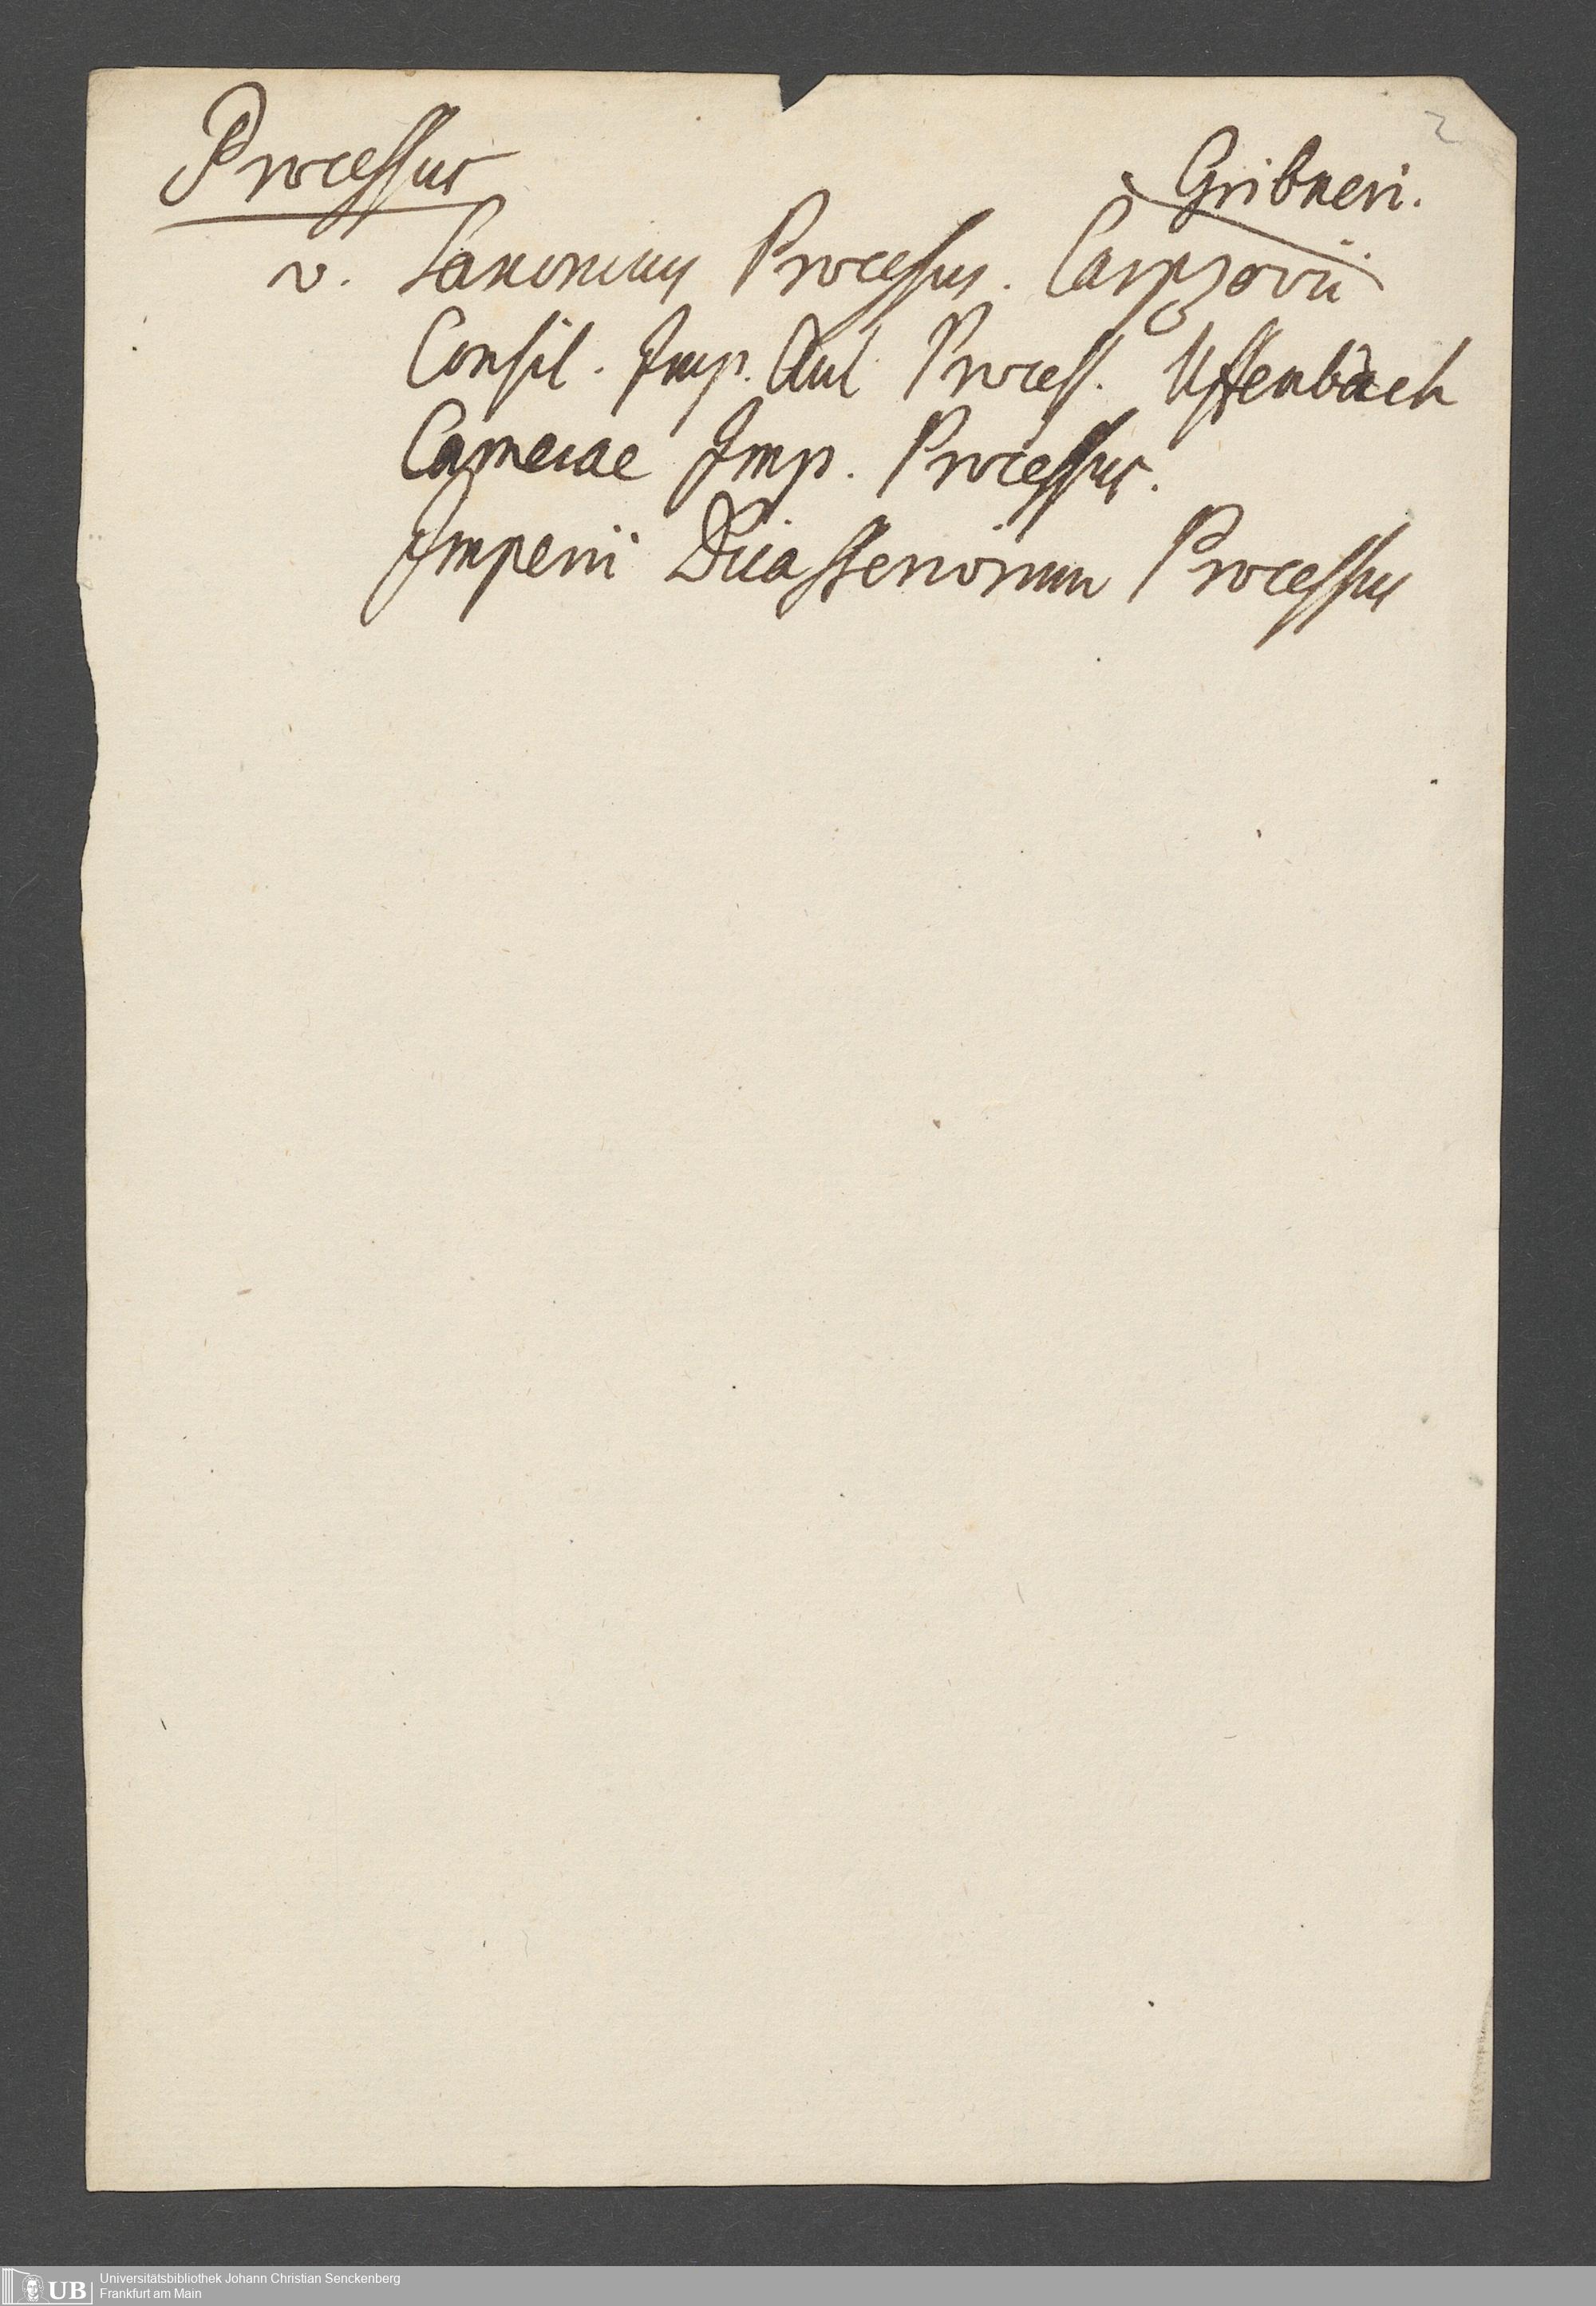 2
Processus
Gribneri.
v. Saxonicus Processus. Carpzovii
Consil. Imp. Aul. Process. Uffenbach
Camerae Imp. Processus.
Imperii Dicasteriorum Processus
UB Universitätsbibliothek Johann Christian Senckenberg
Frankfurt am Main